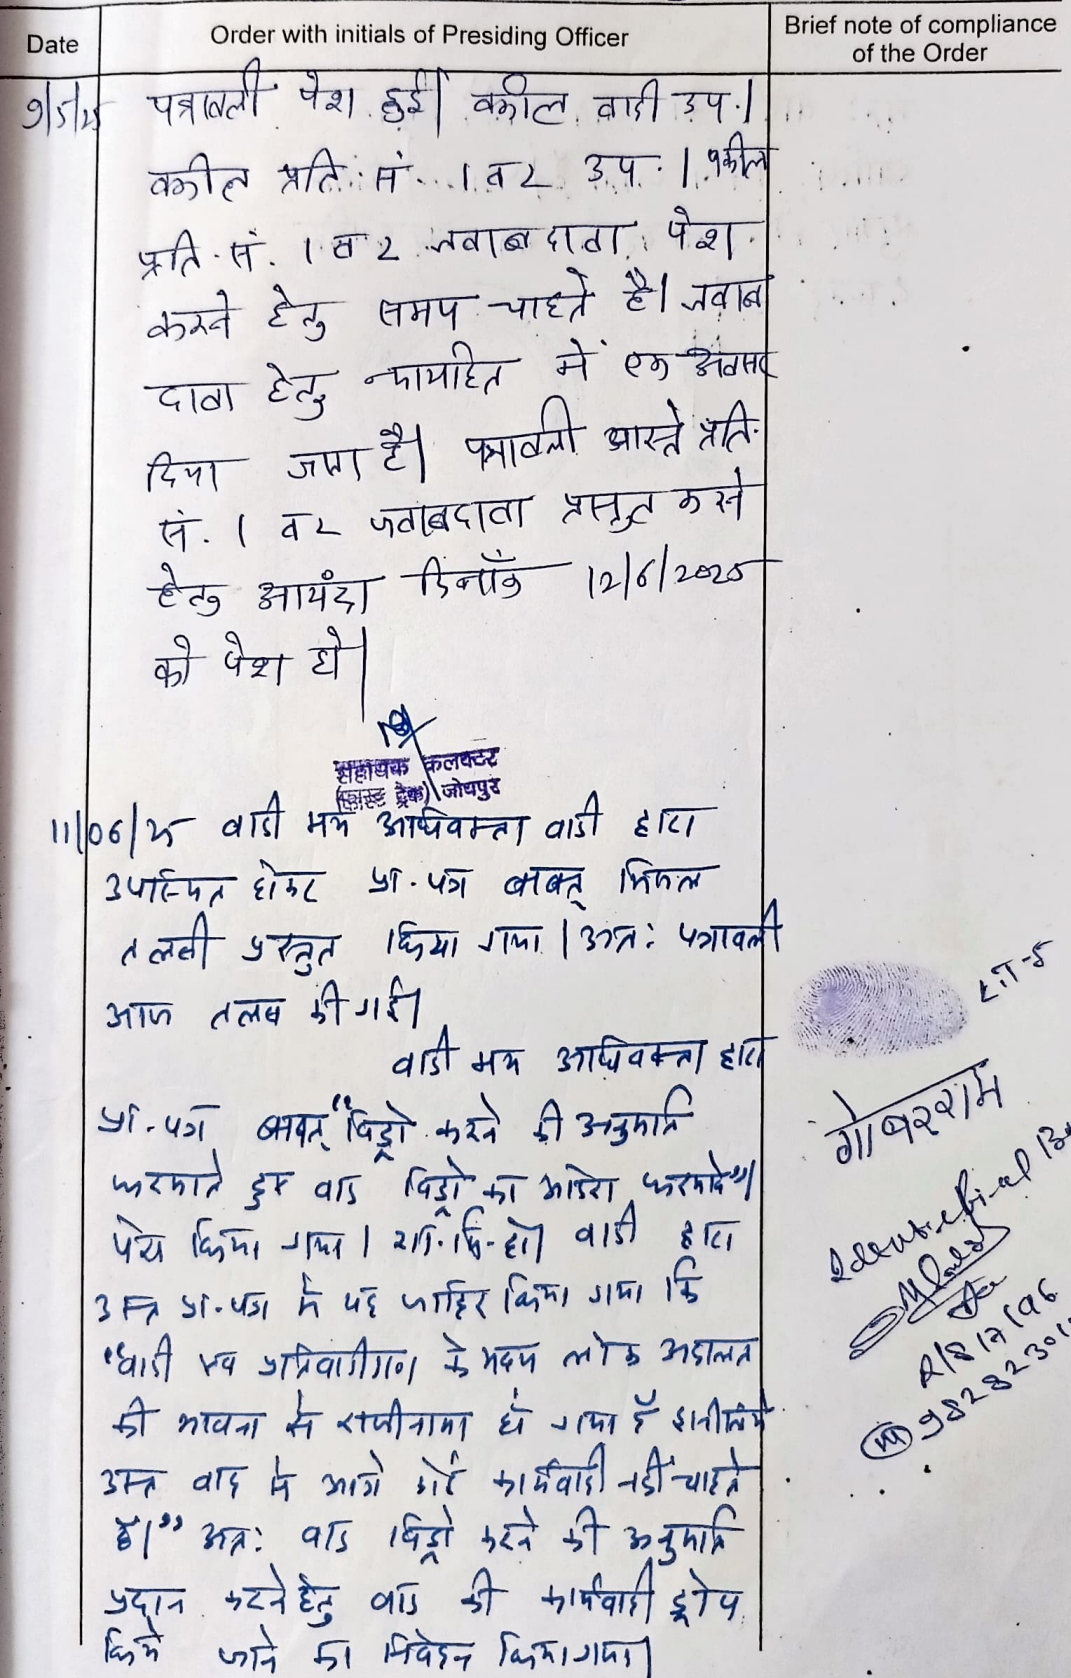 Date
Order with initials of Presiding Officer
Brief note of compliance
of the Order
9/5/25 पत्रावली पेश हुई। वकील वादी उप.।
वकील प्रति. सं. 1 व 2 उप.। वकील
प्रति. सं. 1 व 2 जवाब दावा पेश
करने हेतु समय चाहते है। जवाब
दावा हेतु न्यायहित में एक अवसर
दिया जाता है। पत्रावली वास्ते प्रति.
सं. 1 व 2 जवाबदावा प्रस्तुत करने
हेतु आयंदा दिनाँक 12/6/2025
को पेश हो।
सहायक कलक्टर
(फास्ट ट्रेक) जोधपुर
11/06/25 वादी मय अधिवक्ता वादी द्वारा
उपस्थित होकर प्रा.पत्र बाबत् मिसल
तलबी प्रस्तुत किया गया। अतः पत्रावली
आज तलब की गई।
वादी मय अधिवक्ता द्वारा
प्रा.पत्र बाबत् "विड्रो करने की अनुमति
फरमाते हुए वाद विड्रो का आदेश फरमावे"।
पेश किया गया। वादी द्वारा
उक्त प्रा.पत्र में यह जाहिर किया गया कि
"वादी एवं प्रतिवादीगण के मध्य लोक अदालत
की भावना से राजीनामा हो गया है इसीलिये
उक्त वाद में आगे कोई कार्यवाही नहीं चाहते
है।" अतः वाद विड्रो करने की अनुमति
प्रदान करने हेतु वाद की कार्यवाही ड्रोप
किये जाने का निवेदन किया गया।
LT-5
गोबरराम
Identified By
R/817/96
(M) 98282301